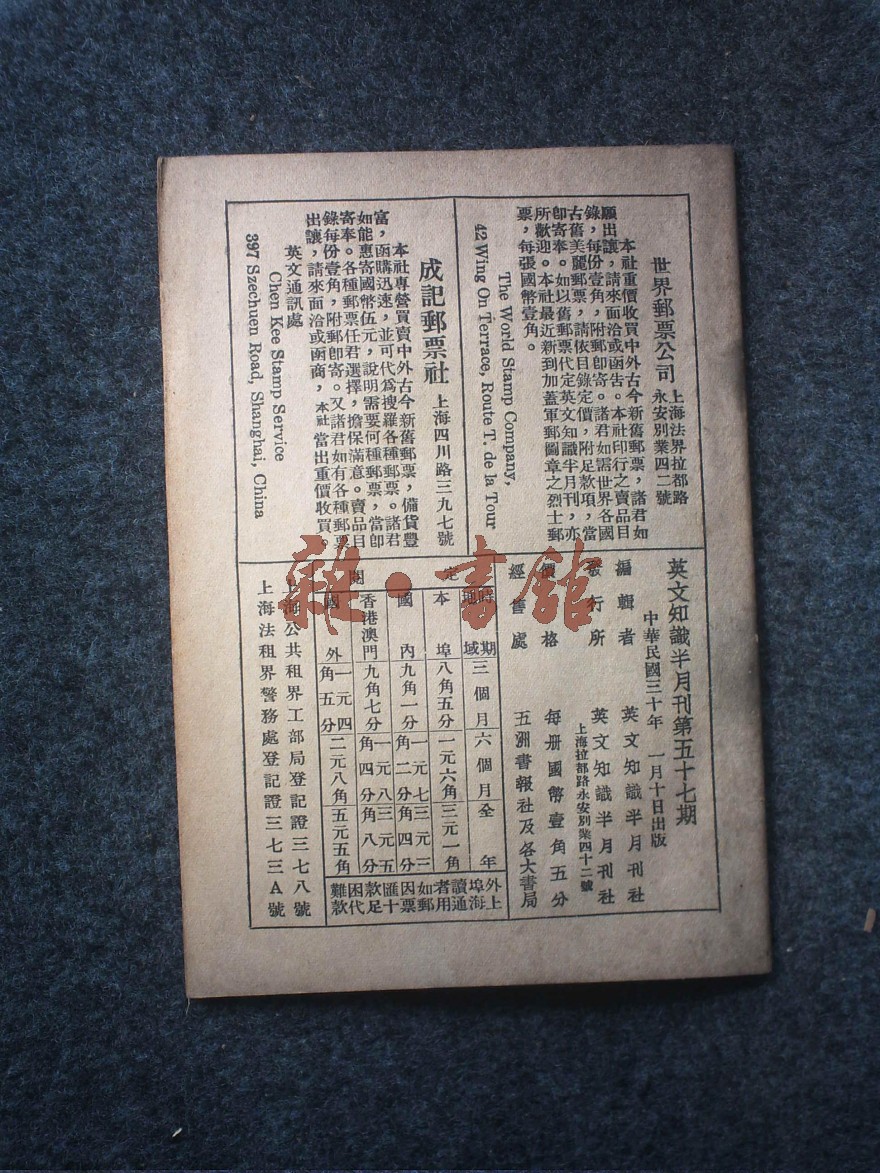 世界郵票公司 上海法界拉都路
永安別業四二號
本社重價收買中外古今新舊郵票，諸君如
願出讓，請來面洽或函告。本社印行之賣品目
錄，每份壹角，附郵卽寄。諸君如需世界各國
古舊美麗郵票，請依目錄定價，附足款項，當
卽寄奉。如以舊郵票代定英文知識半月刊，亦
所歡迎。本社最近新到加蓋軍郵圖章之烈士郵
票，每張國幣壹角。
The World Stamp Company,
42 Wing On Terrace, Route T. de la Tour
成記郵票社 上海四川路三九七號
本社專營買賣中外古今新舊郵票，備貨豐
富，函購迅速，並可代爲搜羅各種郵票。諸君
如能惠寄國幣伍元，說明需要何種郵票，當卽
寄奉。各種郵票任君選擇，擔保滿意。賣品目
錄每份壹角，附郵卽寄。又諸君如有各種郵票
出讓，請來面洽或函商，本社當出重價收買。
英文通訊處
Chen Kee Stamp Service
397 Szechuen Road, Shanghai, China
英文知識半月刊第五十七期
中華民國三十年 一月十日出版
編輯者 英文知識半月刊社
發行所 英文知識半月刊社
上海拉都路永安別業四十二號
價格 每册國幣壹角五分
經售處 五洲書報社及各大書局
定閱
時期 地域 三個月 六個月 全年
本埠 八角五分 一元六角 三元一角
國內 九角一分 一元七角二分 三元三角四分
香港澳門 九角七分 一元八角四分 三元五角八分
國外 一元四角五分 二元八角 五元五角
外埠讀者如因匯款困難
上海通用郵票十足代款
上海公共租界工部局登記證三七八號
上海法租界警務處登記證三七三A號
雜·書館